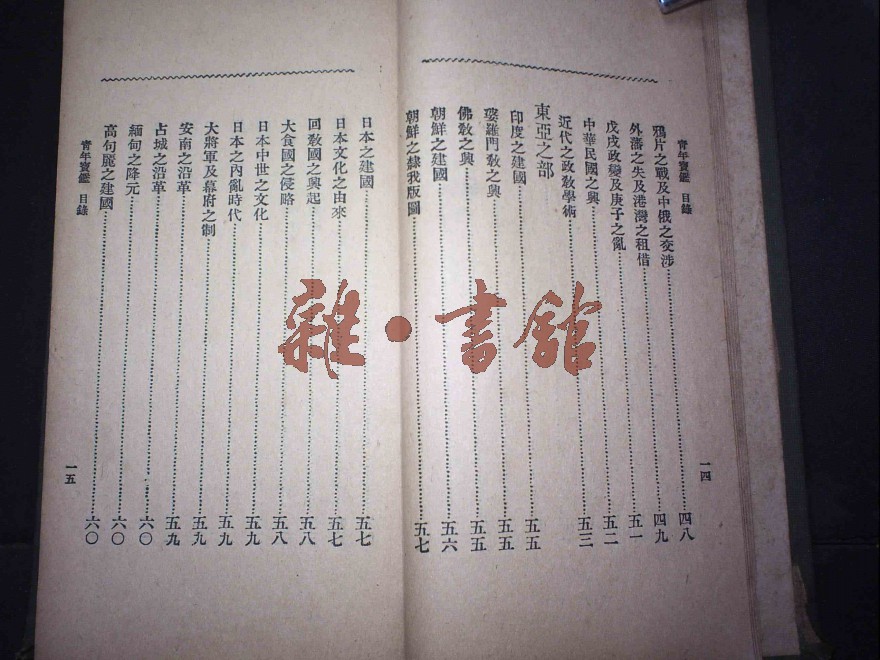 青年寶鑑 目錄
一四
鴉片之戰及中俄之交涉……四八
外藩之失及港灣之租借……四九
戊戌政變及庚子之亂……五一
中華民國之興……五二
近代之政教學術……五三
東亞之部
印度之建國……五五
婆羅門教之興……五五
佛教之興……五五
朝鮮之建國……五六
朝鮮之隸我版圖……五七
日本之建國……五七
日本文化之由來……五七
回教國之興起……五八
大食國之侵略……五八
日本中世之文化……五九
日本之內亂時代……五九
大將軍及幕府之制……五九
安南之沿革……五九
占城之沿革……六〇
緬甸之降元……六〇
高句麗之建國……六〇
青年寶鑑 目錄
一五
雜·書館